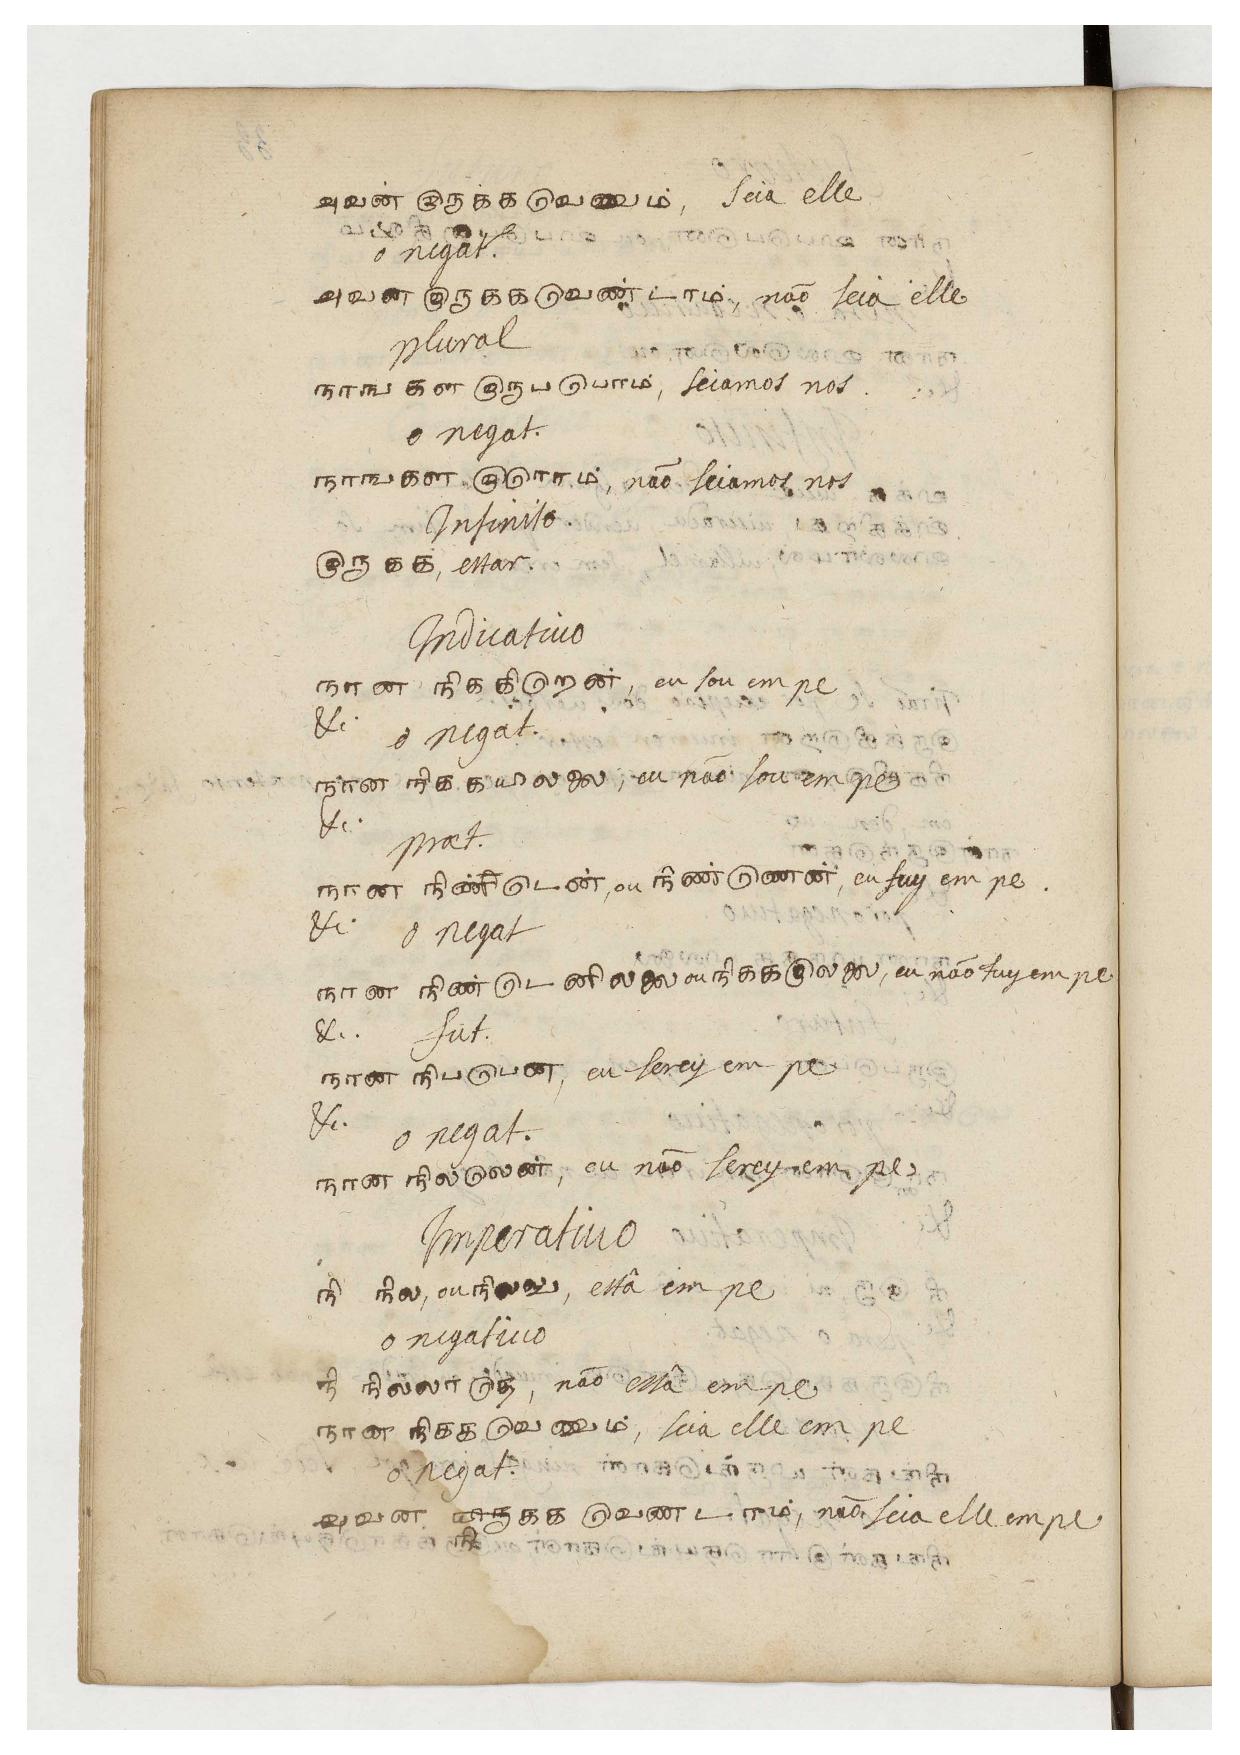 அவன் இருக்க டுவணும், seia elle
o negat.
அவன இருககடுவண்டாம், naõ seia elle
plural
நாஙகள இருபடுபாம், seiamos nos.
o negat.
நாஙகள இடுராம், naõ seiamos nos
Infinito.
இருகக, estar.
Indicatiuo
நான நிககிடுறன், eu sou em pe
&c. o negat.
நான நிககயிலலை, eu naõ sou em pe
&c.
præt.
நான நிண்டுடன், ou நிண்டுணன், eu fuy em pe.
&c. o negat
நான நிண்டுடனிலலை ou நிககடுலலை, eu naõ fuy em pe
&c. fut.
நான நிபடுபன, eu serey em pe
&c. o negat.
நான நிலடுலன், eu naõ serey em pe
Imperatiuo
நி நில, ou நிலலு, está em pe
o negatiuo
நி நிலலாடுத, naõ está em pe
நான நிககடுவணும், seia elle em pe
o negat.
அவன நிகக டுவணடாம், naõ seia elle em pe